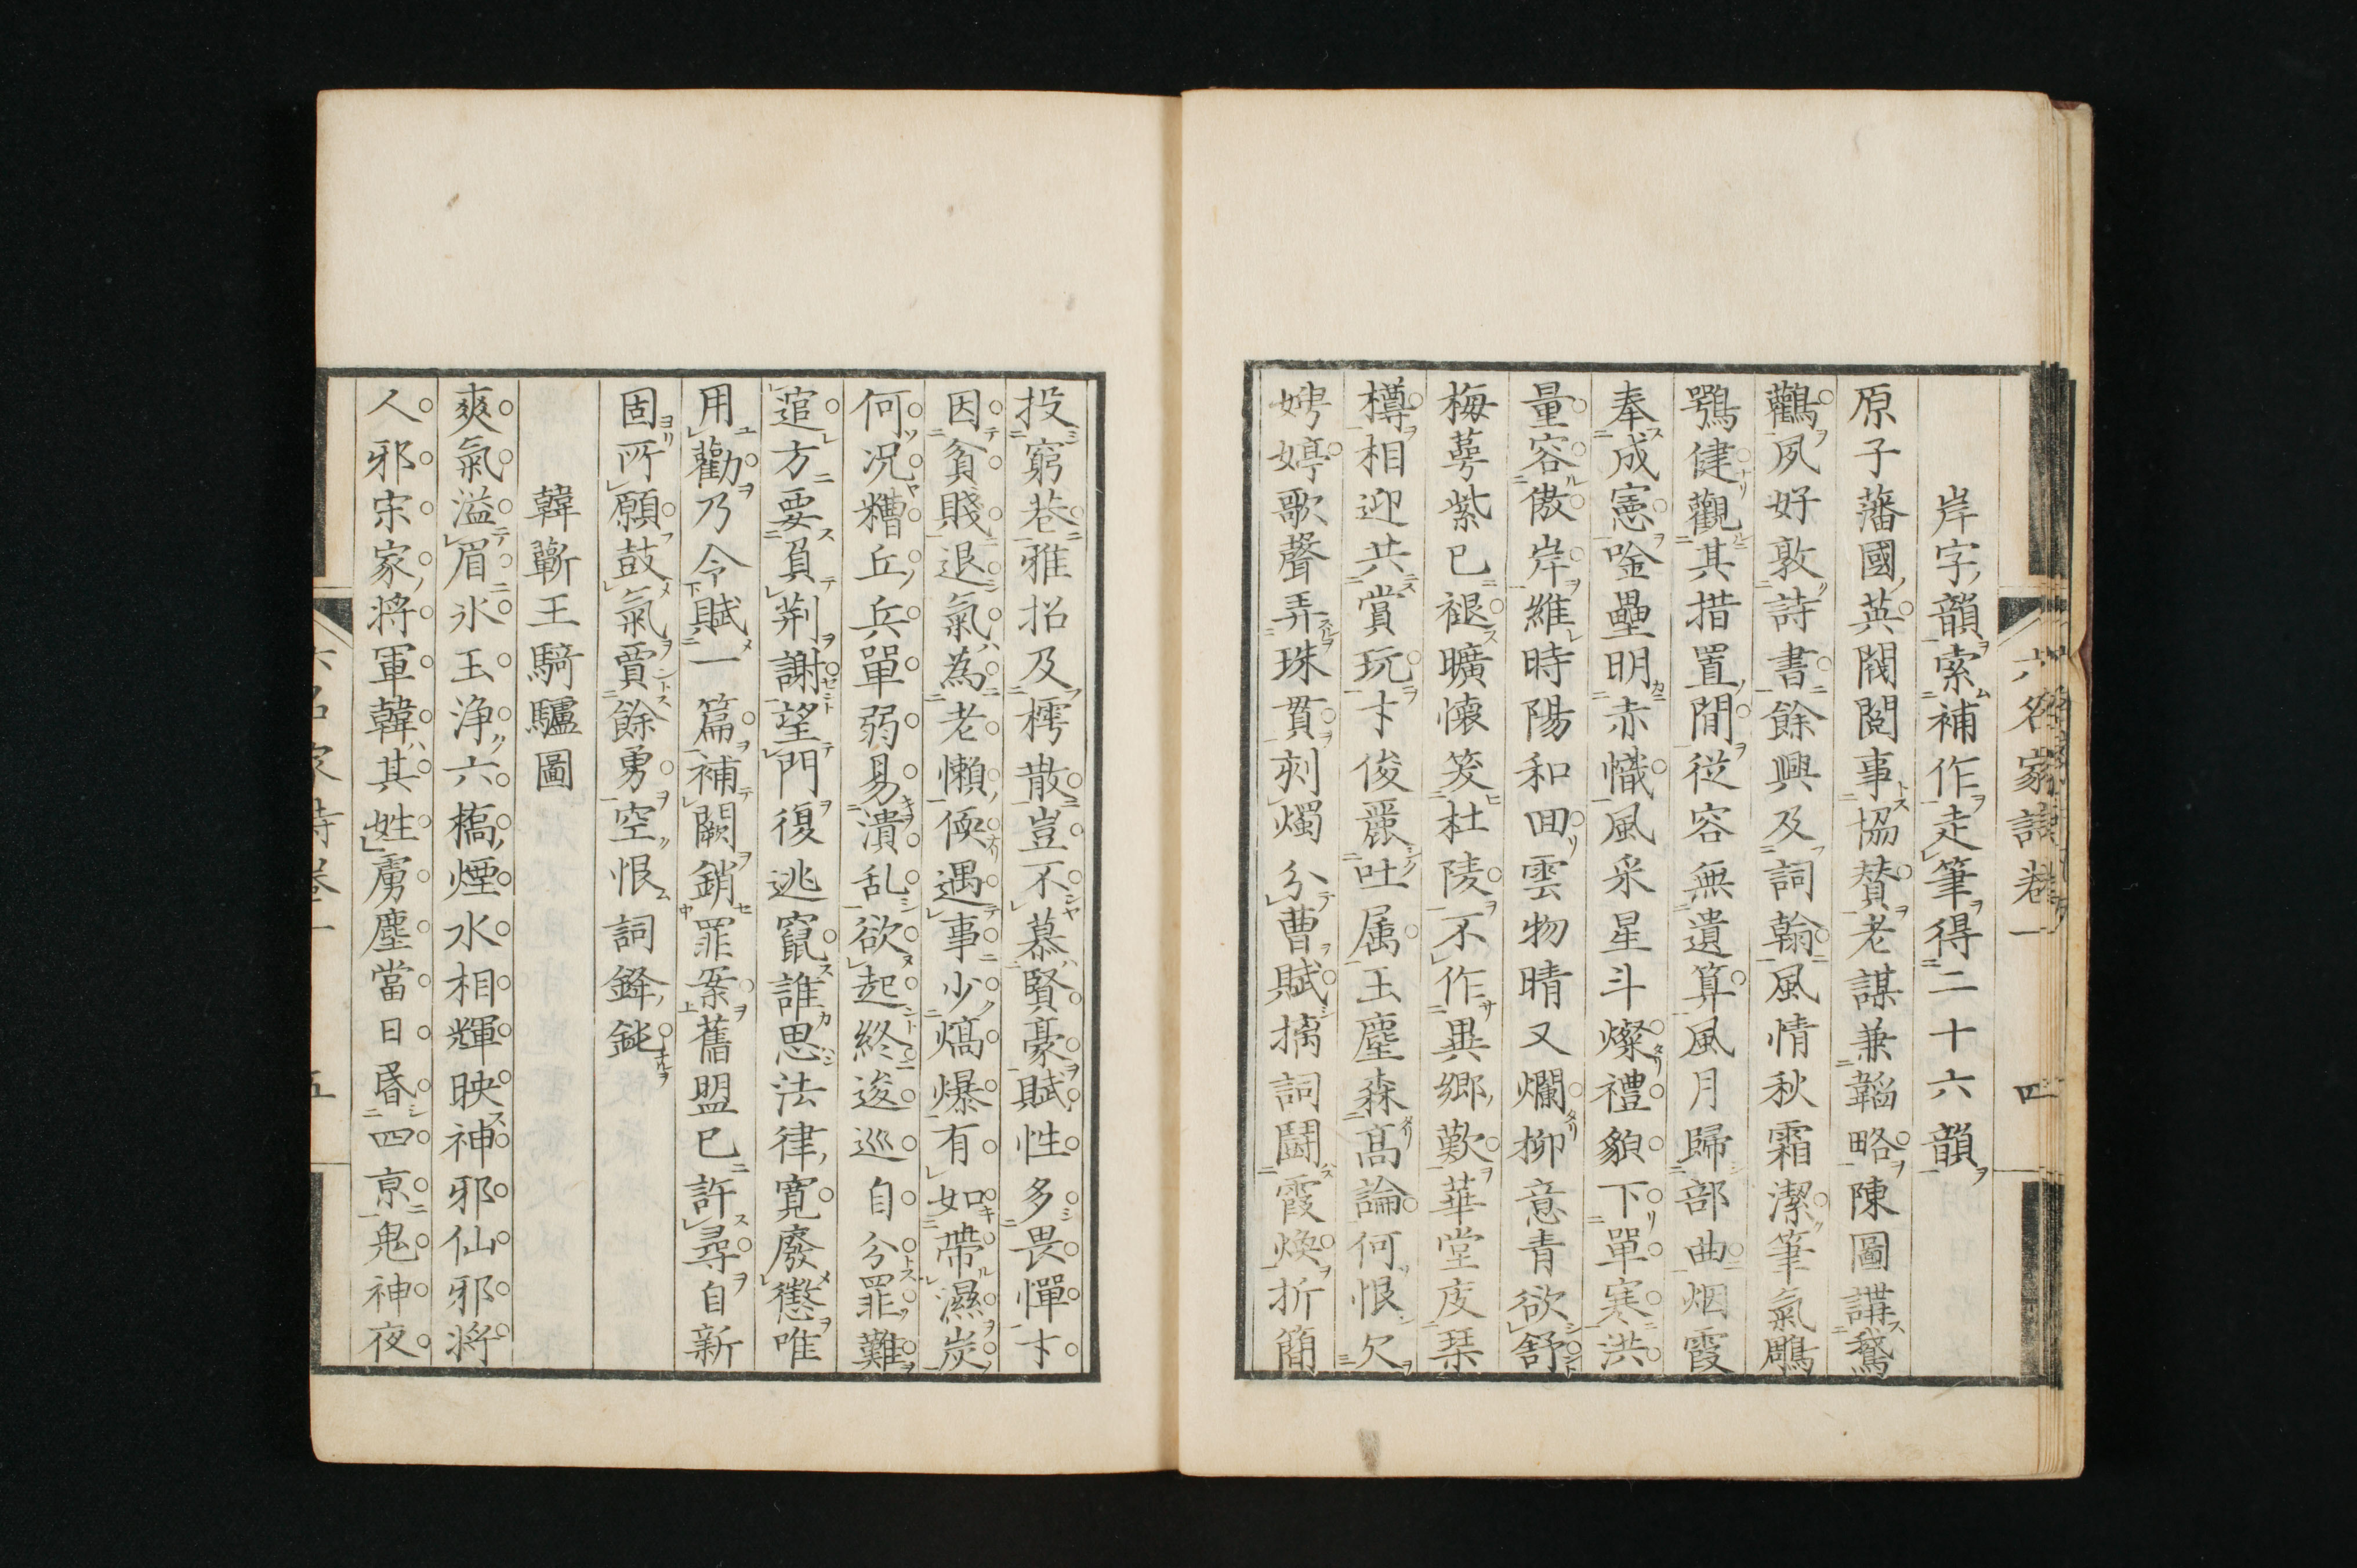 六名家詩卷一 四
岸字韻索補作走筆得二十六韻
原子藩國英閥閲事協賛老謀兼韜略陳圖講鵞
鸛夙好敦詩書餘興及詞翰風情秋霜潔筆氣鵰
鶚健觀其措置間從容無遺算風月歸部曲烟霞
奉成憲唫壘明赤幟風采星斗燦禮貌下單寒洪
量容傲岸維時陽和回雲物晴又爛柳意青欲舒
梅萼紫已褪曠懷笑杜陵不作異郷歎華堂庋琹
樽相迎共賞玩卞俊麗吐属玉塵森髙論何恨欠
娉婷歌聲弄珠貫刻燭分曹賦摛詞鬪霞煥折簡
投窮巷雅招及樗散豈不慕賢豪賦性多畏憚卞
因貧賤退氣為老懶便遇事少熇爆有如帶濕炭
何况糟丘兵單弱易潰乱欲起終逡巡自分罪難
逭方要負荆謝望門復逃竄誰思法律寛廢懲唯
用勸乃令賦一篇補闕銷罪案舊盟已許尋自新
固所願鼓氣賈餘勇空恨詞鋒鈍
韓蘄王騎驢圖
爽氣溢眉氷玉浄六橋煙水相輝映神邪仙邪将
人邪宗家将軍韓其姓虜塵當日昏四亰鬼神夜
六名家詩卷一 五